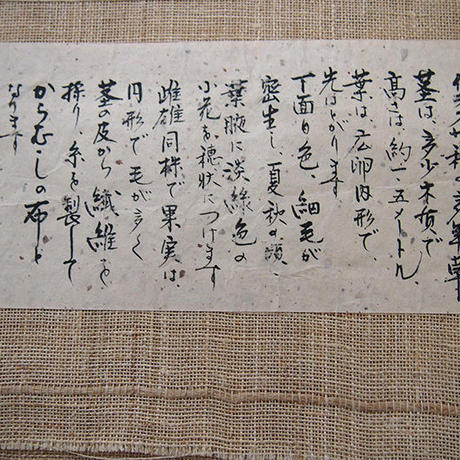 イラクサ科の多年草
茎は、多少木質で
高さは、約一・五メートル、
葉は、広卵円形で、
先はとがります
下面白色、細毛が
密生し、夏秋の頃、
葉腋に淡緑色の
小花を穂状につけます
雌雄同株で果実は、
円形で毛が多く
茎の皮から繊維を
採り、糸を製して
からむしの布と
なります